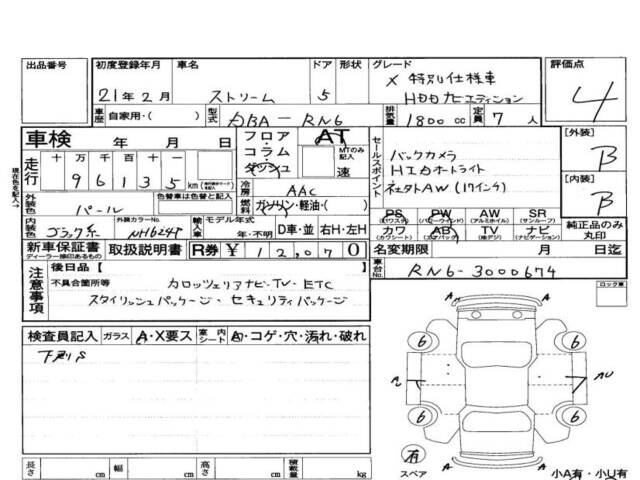 出品番号 初度登録年月 車名 ドア 形状 グレード 評価点
21年2月 ストリーム 5 X 特別仕様車
HDDナビエディション
4
車歴 自家用・( ) 型式 DBA-RN6 排気量 1800 cc 定員 7 人
車検 年 月 日
フロア・コラム・ダッシュ AT MTのみ記入 速
セールスポイント
バックカメラ
HIDオートライト
社外AW(17インチ)
[外装] B
[内装] B
現在色を記入→
走行 十 万 千 百 十
9 6 1 3 5 km
冷房 AAC
燃料 ガソリン・軽油・( )
外装色 パール 色替車は色替と記入
内装色 ブラック系 外装カラーNo. NH624P 輸入車 モデル年式 年・不明 D車・並 右H・左H
PS (パワステ) PW (パワーウインド) AW (アルミホイル) SR (サンルーフ)
カワ (カワシート) AB (エアバック) TV (純デジ) ナビ (ナビゲーション)
純正品のみ丸印
新車保証書 ディーラー捺印あるもの 取扱説明書 R券 ¥ 1 2,0 7 0
名変期限 月 日迄
車台No. RN6-3000674
注意事項
後日品【 】
不具合箇所等 カロッツェリアナビ・TV・ETC
スタイリッシュパッケージ・セキュリティパッケージ
ロック車
検査員記入 ガラス A・X要ス 室内シート 切・コゲ・穴・汚れ・破れ
下廻りS
6 6
6 6
A A
A A
有
スペア
小A有・小U有
長さ cm 幅 cm 高さ cm 積載量 kg